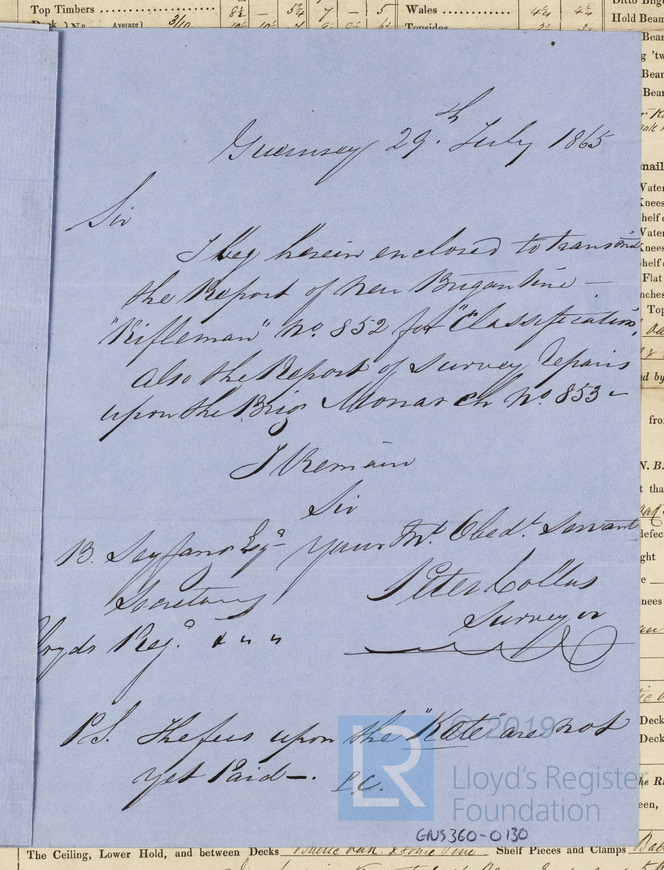 Top Timbers
8½ — 5¾ 7 — 5
Wales 4½ 4½
Average
3/10
Topsides
Hold Beam
Guernsey 29th July 1865
Sir
I beg herein enclosed to transmit
the Report of New Brigantine —
"Rifleman" No. 852 for "Classification,
also the Report of Survey Repairs
upon the Brig Monarch No 853 –
I Remain
Sir
B. Seyfang Esqr your Obedt. Servant
Secretary
Peter Collas
Surveyor
Lloyds Reg.
P.S. The fees upon the "Kate" are not
yet Paid —. P.C.
© 2019
LR
Lloyd's Register
Foundation
GNS360-0130
The Ceiling, Lower Hold, and between Decks
Shelf Pieces and Clamps